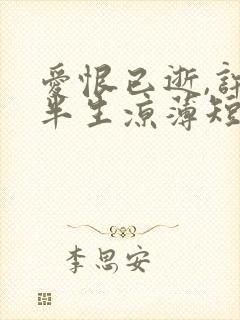 愛恨已逝,許
半生涼薄短
李思安